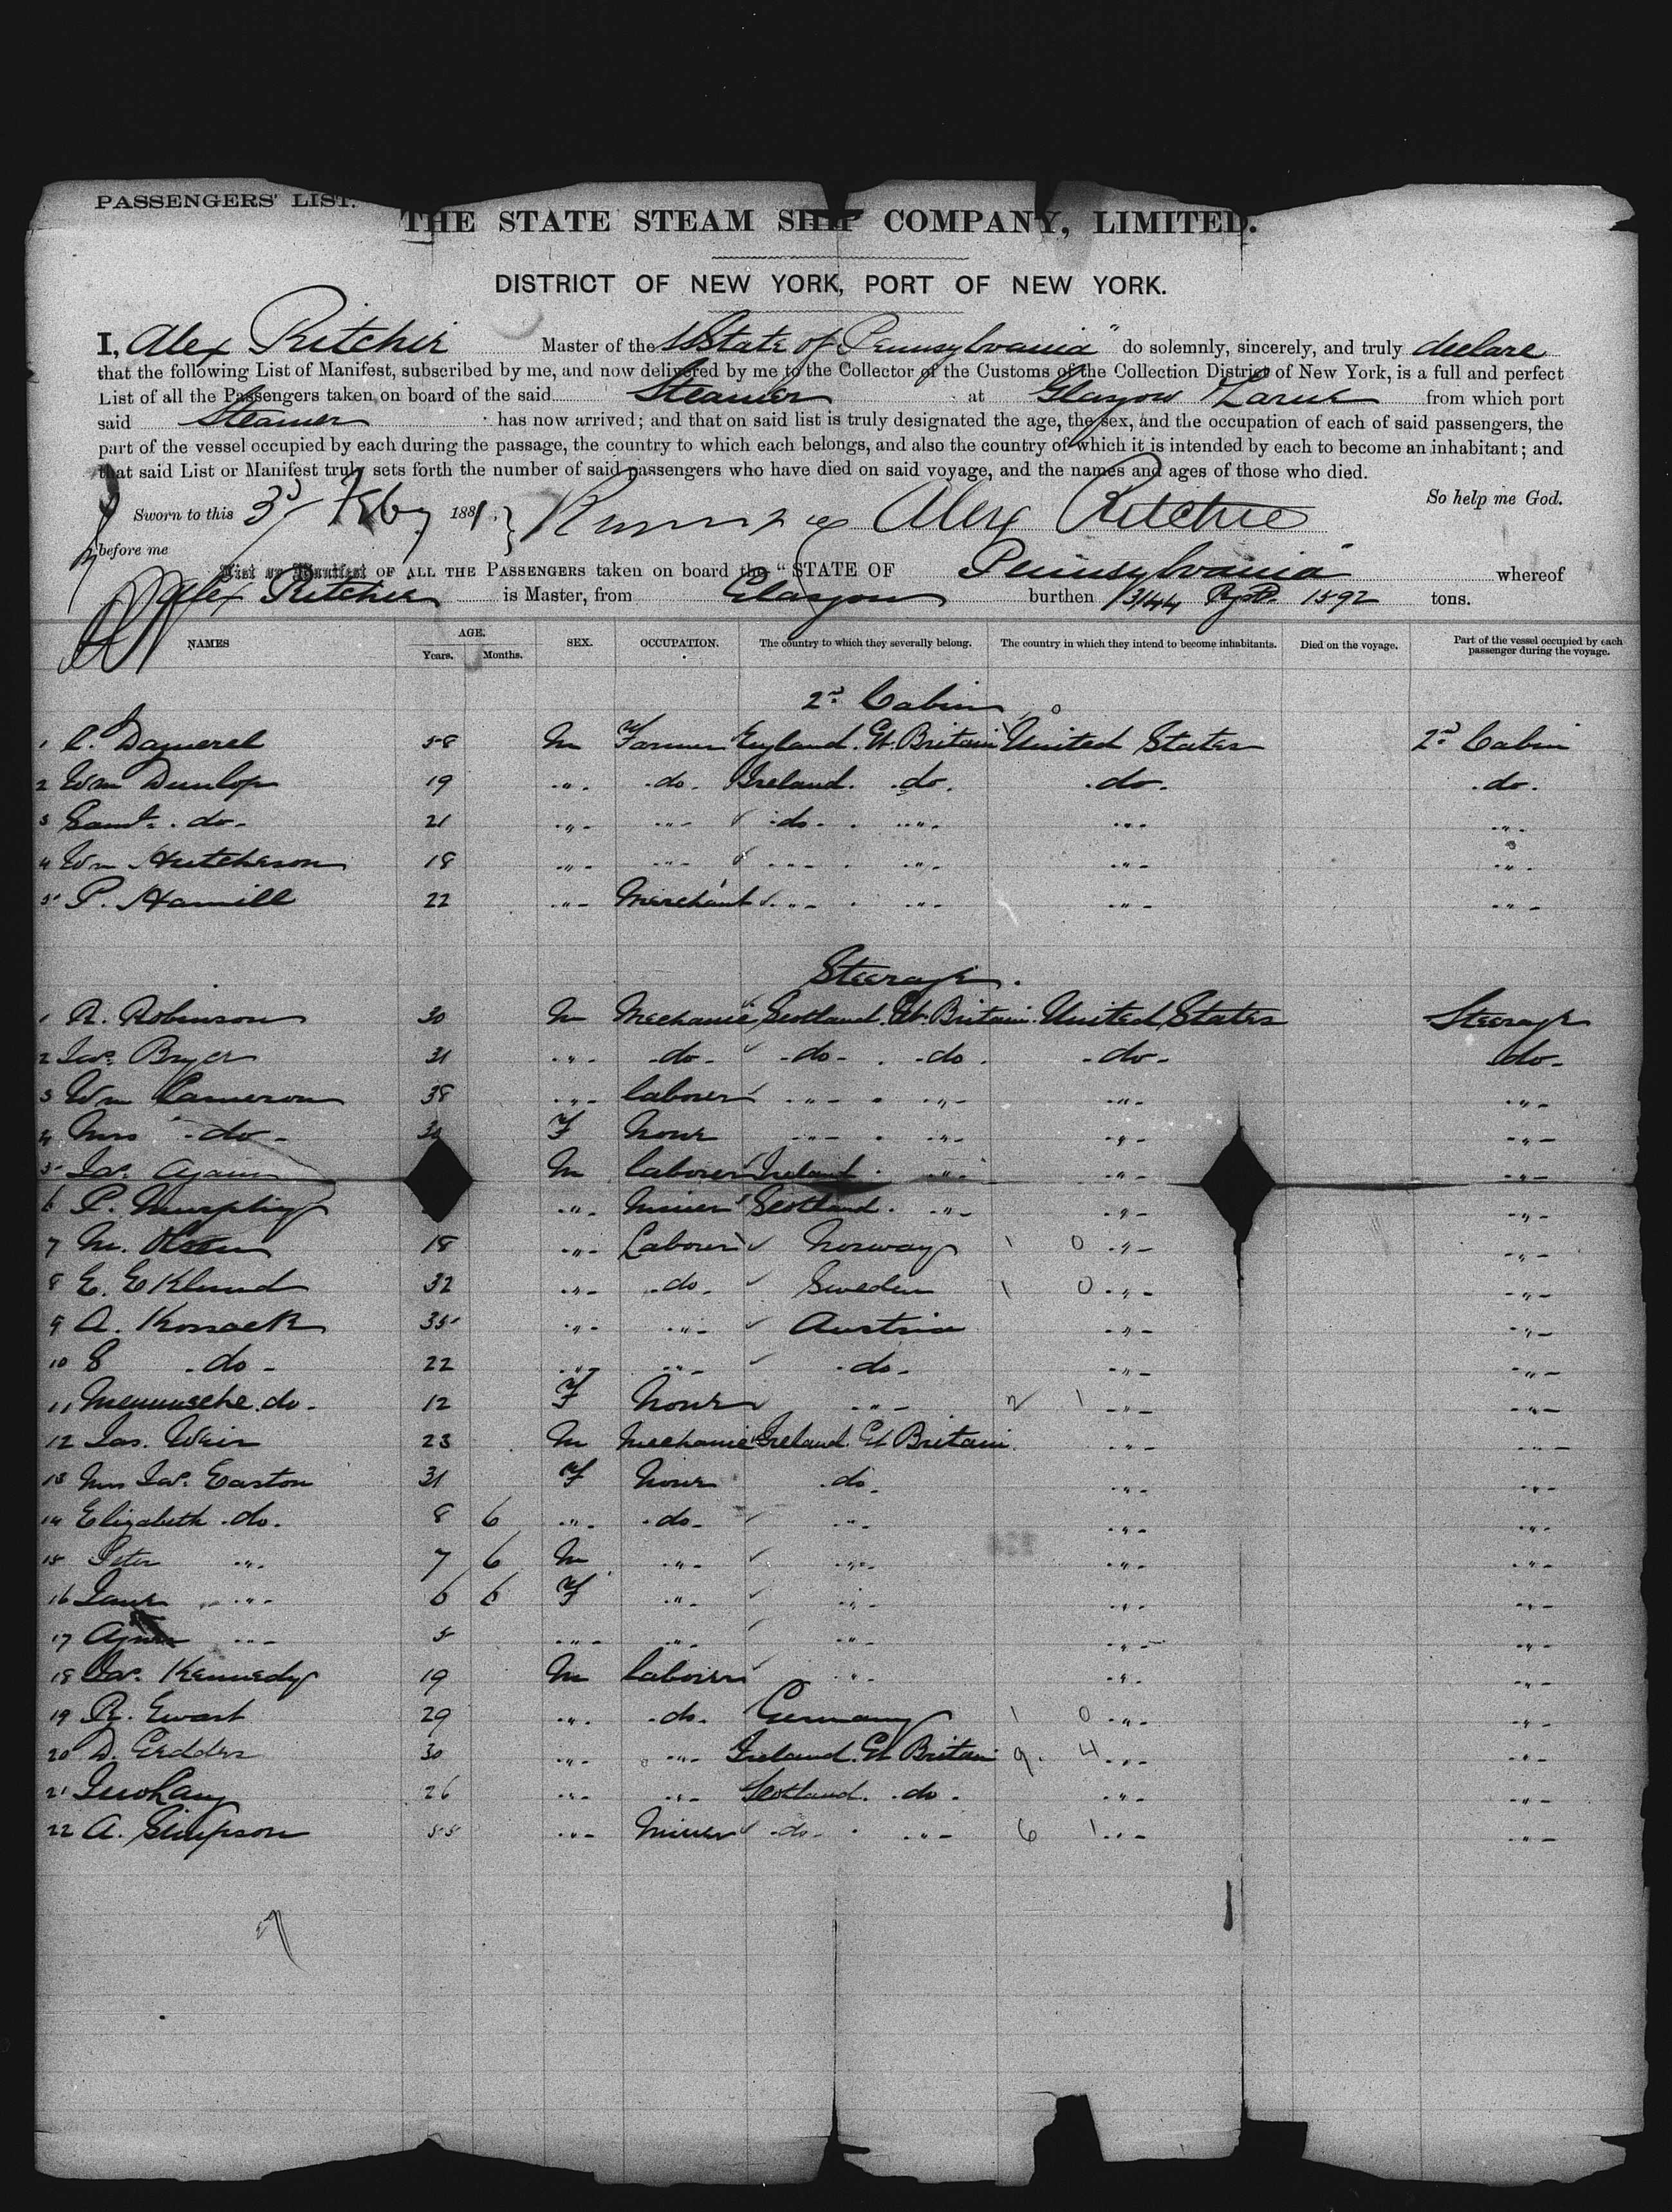 PASSENGERS' LIST.
THE STATE STEAM SHIP COMPANY, LIMITED.
DISTRICT OF NEW YORK, PORT OF NEW YORK.
I, Alex Ritchie Master of the SS State of Pennsylvania" do solemnly, sincerely, and truly declare
that the following List of Manifest, subscribed by me, and now delivered by me to the Collector of the Customs of the Collection District of New York, is a full and perfect
List of all the Passengers taken on board of the said Steamer at Glasgow & Larne from which port
said Steamer has now arrived; and that on said list is truly designated the age, the sex, and the occupation of each of said passengers, the
part of the vessel occupied by each during the passage, the country to which each belongs, and also the country of which it is intended by each to become an inhabitant; and
that said List or Manifest truly sets forth the number of said passengers who have died on said voyage, and the names and ages of those who died.
So help me God.
Sworn to this 3d Feby 1881. } Alex Ritchie
before me
List or Manifest OF ALL THE PASSENGERS taken on board the "STATE OF Pennsylvania" whereof
Alex Ritchie is Master, from Glasgow burthen 1592 tons.
NAMES AGE. Years. Months. SEX. OCCUPATION. The country to which they severally belong. The country in which they intend to become inhabitants. Died on the voyage. Part of the vessel occupied by each passenger during the voyage.
2nd Cabin
1 C. Damerel 58 M Farmer England. Gt. Britain United States 2nd Cabin
2 Wm Dunlop 19 " do. Ireland. do. do. do.
3 Saml. do. 21 " " do. " " "
4 Wm Hutcheson 18 " " " " " "
5 P. Hamill 22 " Merchant " " " "
Steerage.
1 A. Robinson 30 M Mechanic Scotland. Gt. Britain United States Steerage
2 Jas. Bryer 31 " do. do. do. do. do.
3 Wm Cameron 38 " laborer " " " "
4 Mrs do. F None " " " "
5 M laborer Ireland " " "
6 P. Murphy " Miner Scotland. " " "
7 M. Olsen 18 " Laborer Norway 1 0 " "
8 E. Eklund 32 " do. Sweden 1 0 " "
9 A. Kossack 35 " " Austria " "
10 S do. 22 " " do. " "
11 do. 12 F None " 2 1 " "
12 Jas. Weir 23 M Mechanic Ireland Gt Britain " "
13 Mrs Jas. Easton 31 F None do. " "
14 Elizabeth do. 8 6 " do. " " "
15 Peter " 7 6 M " " " "
16 Jane " 6 6 F " " " "
17 Agnes " 5 " " " " "
18 Jas. Kennedy 19 M laborer " " "
19 R. Ewart 29 " do. Germany 1 0 " "
20 D. Geddes 30 " " Ireland. Gt Britain 9 4 " "
21 26 " " Scotland. do. " "
22 A. Simpson 55 " Miner do. " 6 1 " "